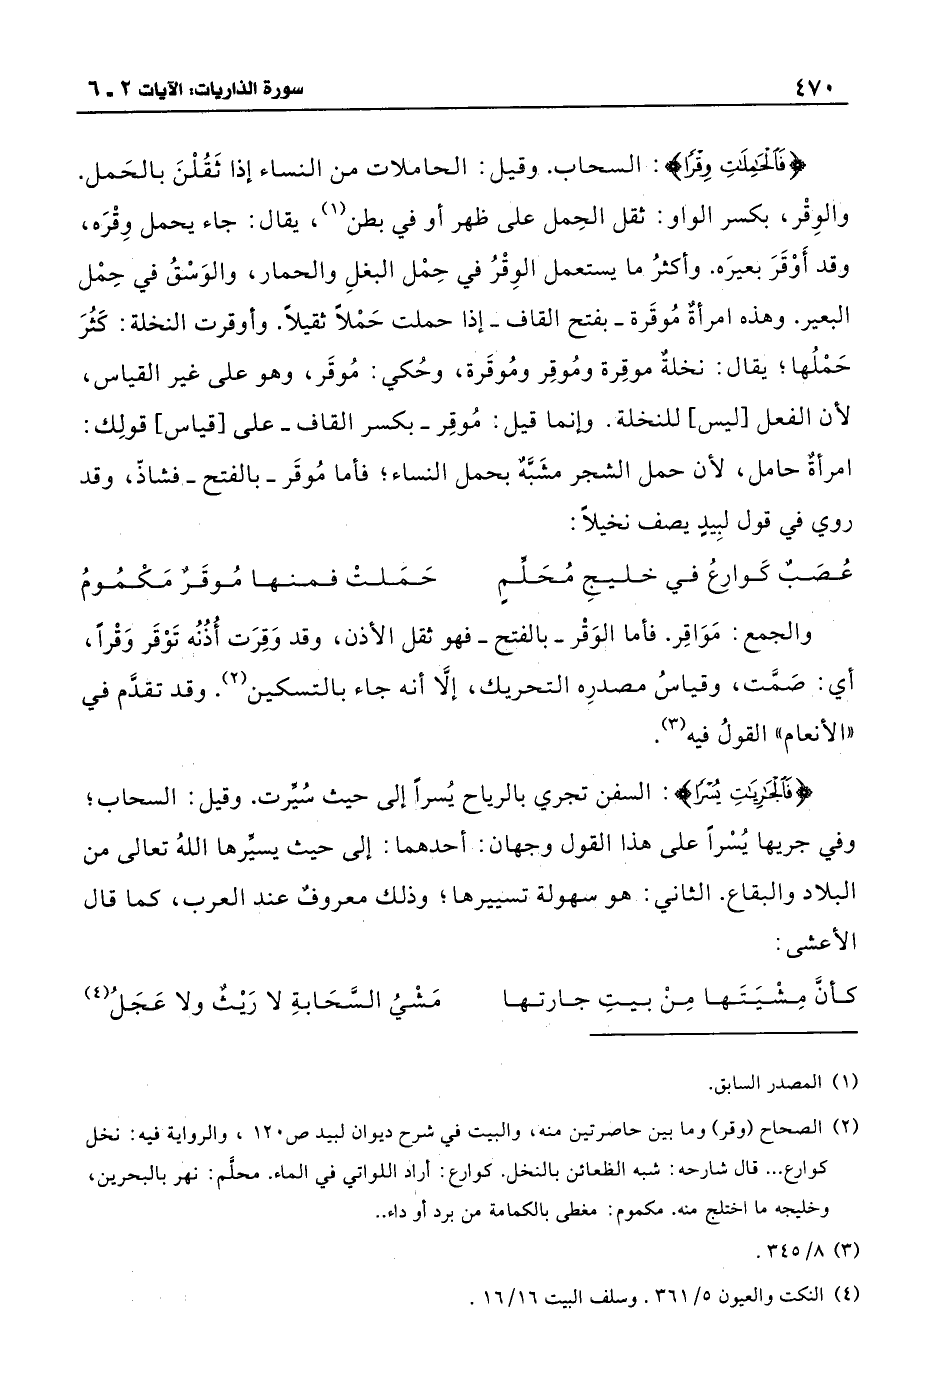 ٤٧٠
سورة الذاريات: الآيات ٢ ـ ٦
﴿فَٱلْحَٰمِلَٰتِ وِقْرًا﴾: السحاب. وقيل: الحاملات من النساء إذا ثَقُلْنَ بالحَمل.
والوِقْر، بكسر الواو: ثقل الحِمل على ظهر أو في بطن(١)، يقال: جاء يحمل وِقْرَه،
وقد أَوْقَرَ بعيرَه. وأكثرُ ما يستعمل الوِقْرُ في حِمْل البغلِ والحمار، والوَسْقُ في حِمْل
البعير. وهذه امرأةٌ مُوقَرة ـ بفتح القاف ـ إذا حملت حَمْلاً ثقيلاً. وأوقرت النخلة: كَثُرَ
حَمْلُها؛ يقال: نخلةٌ موقِرة ومُوقِر ومُوقَرة، وحُكي: مُوقَر، وهو على غير القياس،
لأن الفعل [ليس] للنخلة. وإنما قيل: مُوقِر ـ بكسر القاف ـ على [قياس] قولِك:
امرأةٌ حامل، لأن حمل الشجر مشَبَّهٌ بحمل النساء؛ فأما مُوقَر ـ بالفتح ـ فشاذّ، وقد
روي في قول لَبِيدٍ يصف نخيلاً:
عُصَبٌ كَوارعُ في خليجِ مُحَلِّمٍ حَمَلتْ فمنها مُوقَرٌ مَكْمُومُ
والجمع: مَوَاقِر. فأما الوَقْر ـ بالفتح ـ فهو ثقل الأذن، وقد وَقِرَت أُذُنُه تَوْقَر وَقْراً،
أي: صَمَّت، وقياسُ مصدرِه التحريك، إلَّا أنه جاء بالتسكين(٢). وقد تقدَّم في
«الأنعام» القولُ فيه(٣).
﴿فَٱلْجَٰرِيَٰتِ يُسْرًا﴾: السفن تجري بالرياح يُسراً إلى حيث سُيِّرت. وقيل: السحاب؛
وفي جريها يُسْراً على هذا القول وجهان: أحدهما: إلى حيث يسيِّرها اللهُ تعالى من
البلاد والبقاع. الثاني: هو سهولة تسييرها؛ وذلك معروفٌ عند العرب، كما قال
الأعشى:
كأنَّ مِشْيَتَها مِنْ بيتِ جارتها مَشْيُ السَّحَابةِ لا رَيْثٌ ولا عَجَلُ(٤)
(١) المصدر السابق.
(٢) الصحاح (وقر) وما بين حاصرتين منه، والبيت في شرح ديوان لبيد ص١٢٠ ، والرواية فيه: نخل
كوارع... قال شارحه: شبه الظعائن بالنخل. كوارع: أراد اللواتي في الماء. محلَّم: نهر بالبحرين،
وخليجه ما اختلج منه. مكموم: مغطى بالكمامة من برد أو داء..
(٣) ٨/ ٣٤٥ .
(٤) النكت والعيون ٥/ ٣٦١ . وسلف البيت ١٦/١٦ .